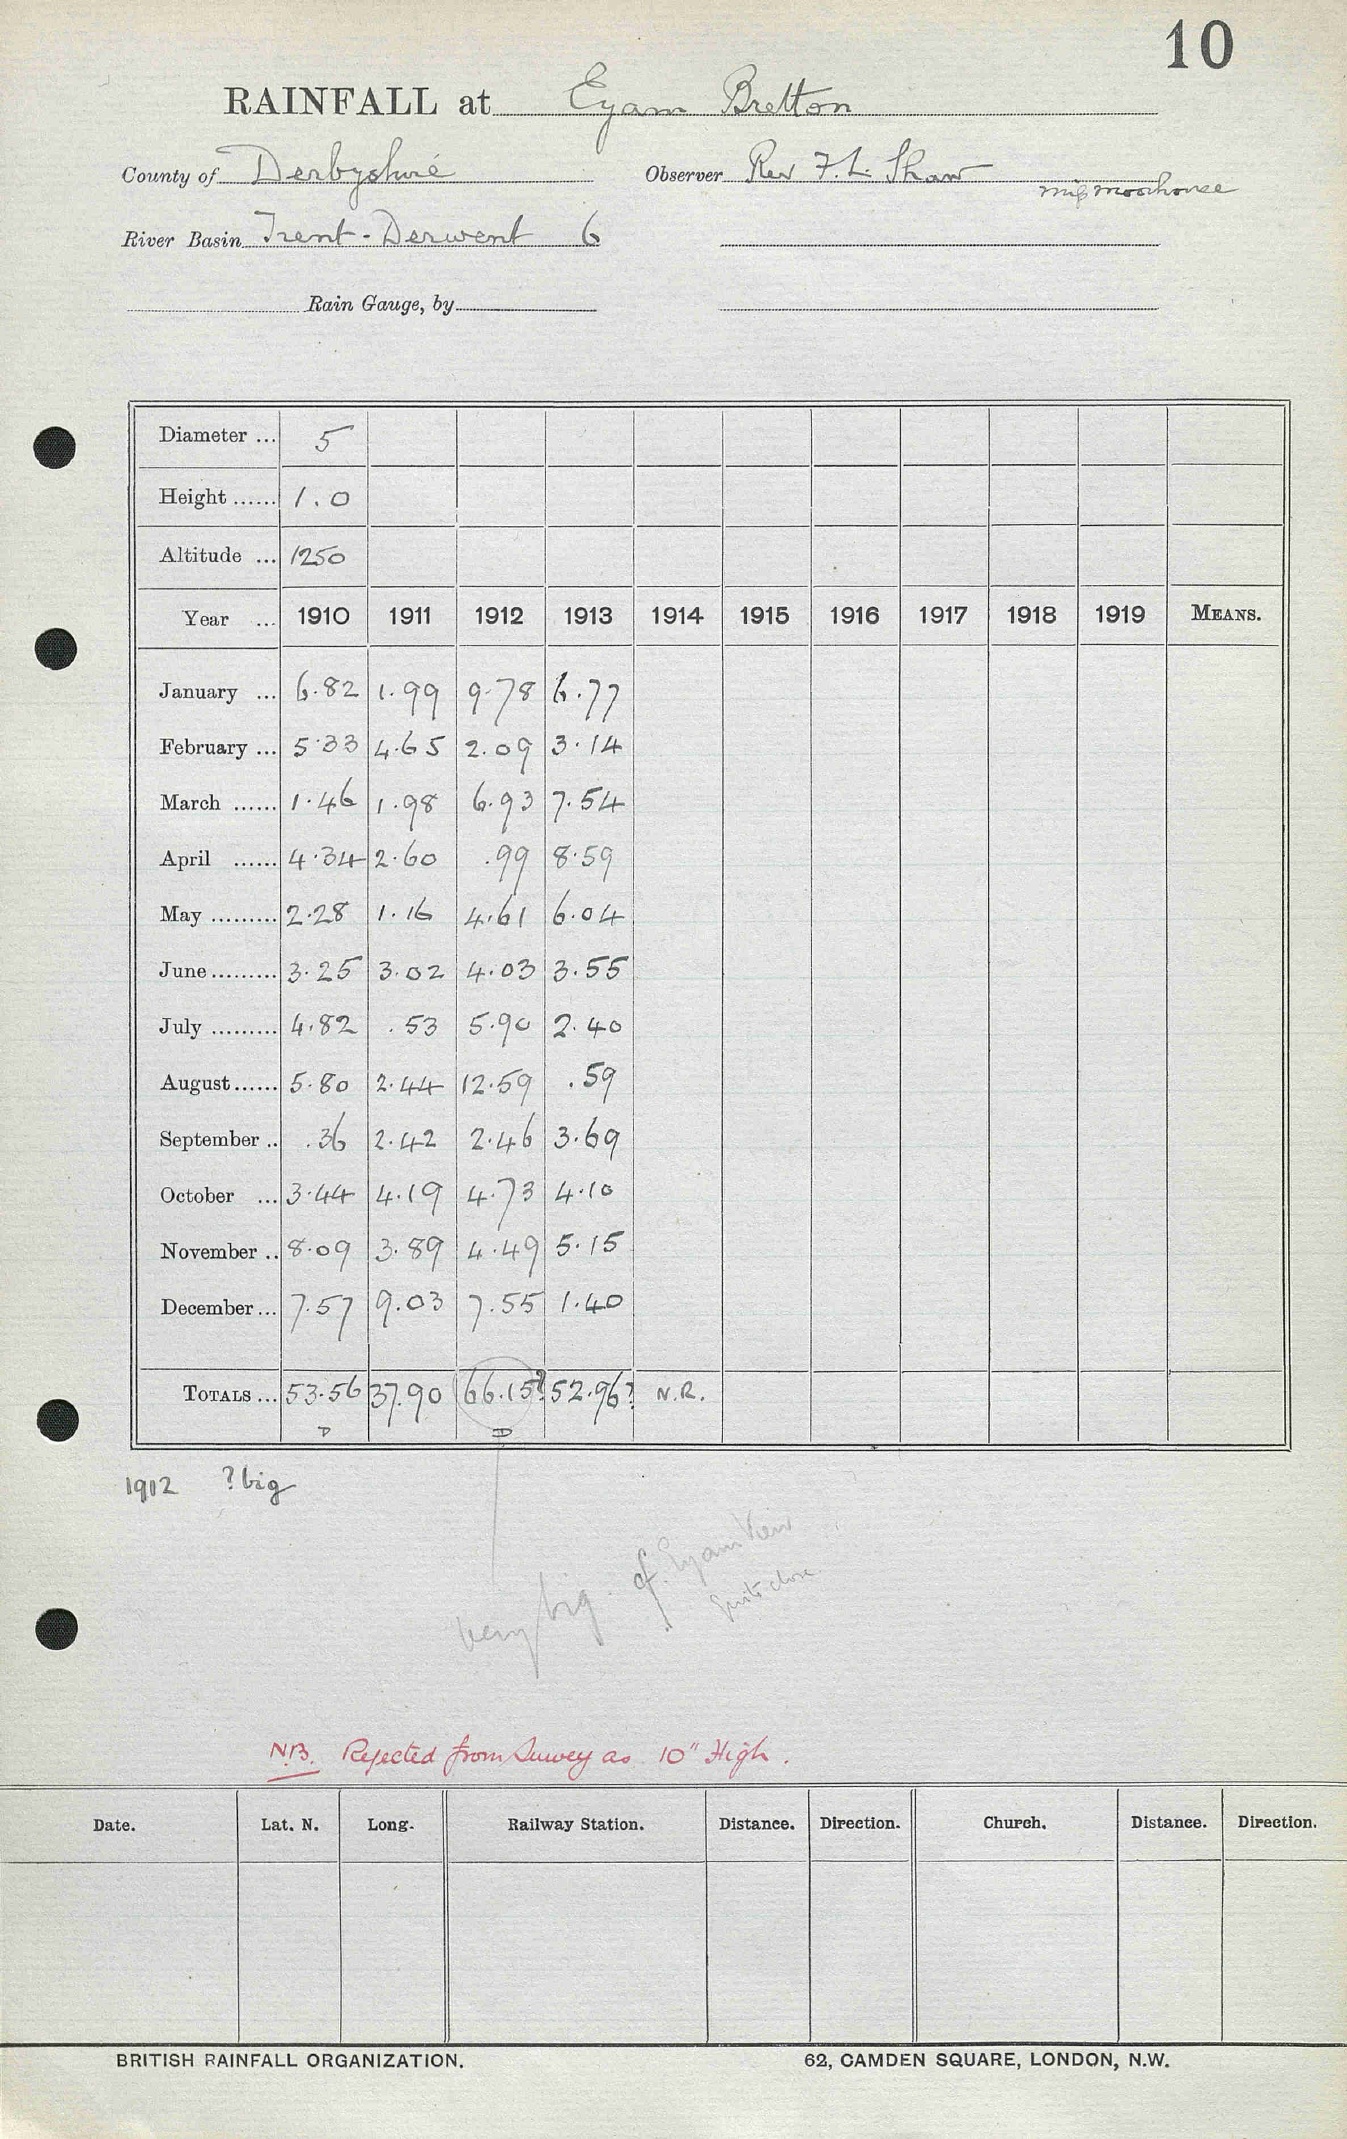 10
RAINFALL at Eyam Bretton
County of Derbyshire Observer Rev F. L. Shaw
Miss Moorhouse
River Basin Trent-Derwent 6
Rain Gauge, by
Diameter ... 5
Height ...... 1.0
Altitude ... 1250
Year ... 1910 1911 1912 1913 1914 1915 1916 1917 1918 1919 MEANS.
January ... 6.82 1.99 9.78 6.77
February ... 5.33 4.65 2.09 3.14
March ...... 1.46 1.98 6.93 7.54
April ...... 4.34 2.60 .99 8.59
May ......... 2.28 1.16 4.61 6.04
June ......... 3.25 3.02 4.03 3.55
July ......... 4.82 .53 5.90 2.40
August ...... 5.80 2.44 12.59 .59
September .. .36 2.42 2.46 3.69
October ... 3.44 4.19 4.73 4.10
November .. 8.09 3.89 4.49 5.15
December ... 7.57 9.03 7.55 1.40
TOTALS ... 53.56 37.90 66.15? 52.96? N.R.
D D
1912 ? big
very big. cf. Eyam View
quite close
N.B. Rejected from Survey as 10" High.
Date. Lat. N. Long. Railway Station. Distance. Direction. Church. Distance. Direction.
BRITISH RAINFALL ORGANIZATION. 62, CAMDEN SQUARE, LONDON, N.W.